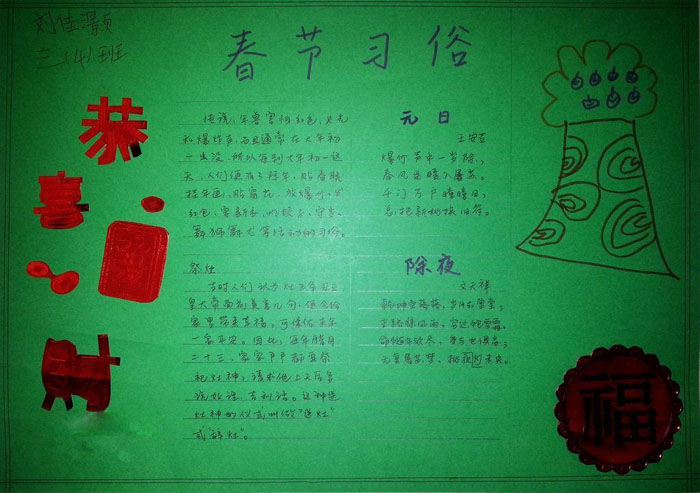 刘佳灏
三(4)班
春节习俗
恭
喜
福
传说,年兽害怕红色、火光
和爆炸声,而且通常在大年初
一出没,所以每到大年初一这
天,人们便有了拜年、贴春联
挂年画、贴窗花、放爆竹、发
红包、穿新衣、吃饺子、守岁、
舞狮舞龙等活动和习俗。
祭灶
古时人们认为灶王爷
皇大帝面前美言几句,便会给
家里带来幸福,可保佑来年
一家平安。因此,每年腊月
二十三,家家户户都要祭
祀灶神,请求他上天后多
说好话、吉利话。这种送
灶神的仪式叫做“送灶”
或“辞灶”。
元日
王安石
爆竹声中一岁除,
春风送暖入屠苏。
千门万户曈曈日,
总把新桃换旧符。
除夜
文天祥
乾坤空落落,岁月去堂堂;
末路惊风雨,穷边饱雪霜。
命随年欲尽,身与世俱忘;
无复屠苏梦,挑灯夜未央。